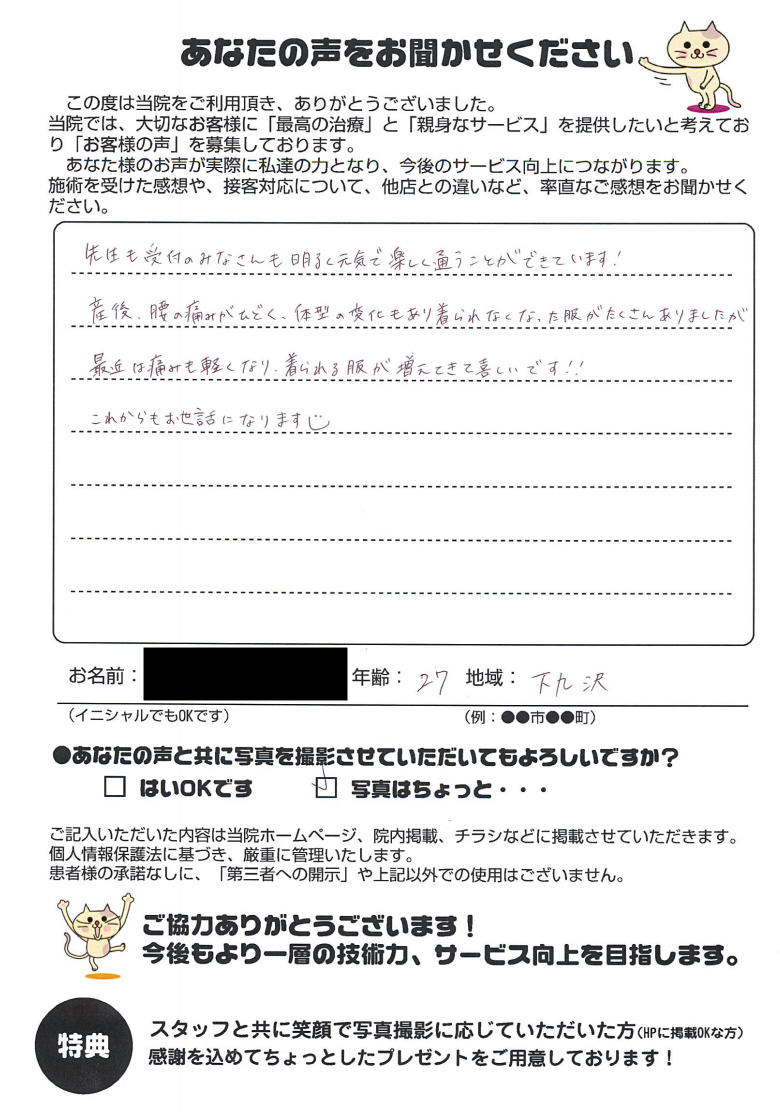 あなたの声をお聞かせください
この度は当院をご利用頂き、ありがとうございました。
当院では、大切なお客様に「最高の治療」と「親身なサービス」を提供したいと考えてお
り「お客様の声」を募集しております。
あなた様のお声が実際に私達の力となり、今後のサービス向上につながります。
施術を受けた感想や、接客対応について、他店との違いなど、率直なご感想をお聞かせく
ださい。
先生も受付のみなさんも明るく元気で楽しく通うことができています!
産後、腰の痛みがひどく、体型の変化もあり着られなくなった服がたくさんありましたが
最近は痛みも軽くなり、着られる服が増えてきて喜しいです!!
これからもお世話になります
お名前: 年齢: 27 地域: 下九沢
(イニシャルでもOKです) (例:●●市●●町)
●あなたの声と共に写真を撮影させていただいてもよろしいですか?
□ はいOKです ☑ 写真はちょっと・・・
ご記入いただいた内容は当院ホームページ、院内掲載、チラシなどに掲載させていただきます。
個人情報保護法に基づき、厳重に管理いたします。
患者様の承諾なしに、「第三者への開示」や上記以外での使用はございません。
ご協力ありがとうございます!
今後もより一層の技術力、サービス向上を目指します。
特典
スタッフと共に笑顔で写真撮影に応じていただいた方(HPに掲載OKな方)
感謝を込めてちょっとしたプレゼントをご用意しております!